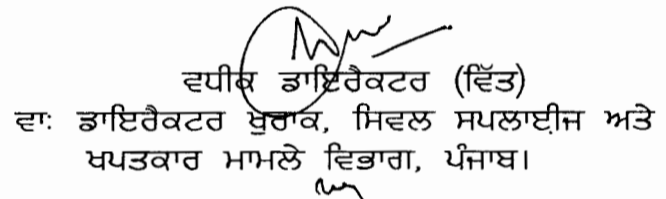 ਵਧੀਕ ਡਾਇਰੈਕਟਰ (ਵਿੱਤ)
ਵਾ: ਡਾਇਰੈਕਟਰ ਖੁਰਾਕ, ਸਿਵਲ ਸਪਲਾਈਜ ਅਤੇ
ਖਪਤਕਾਰ ਮਾਮਲੇ ਵਿਭਾਗ, ਪੰਜਾਬ।